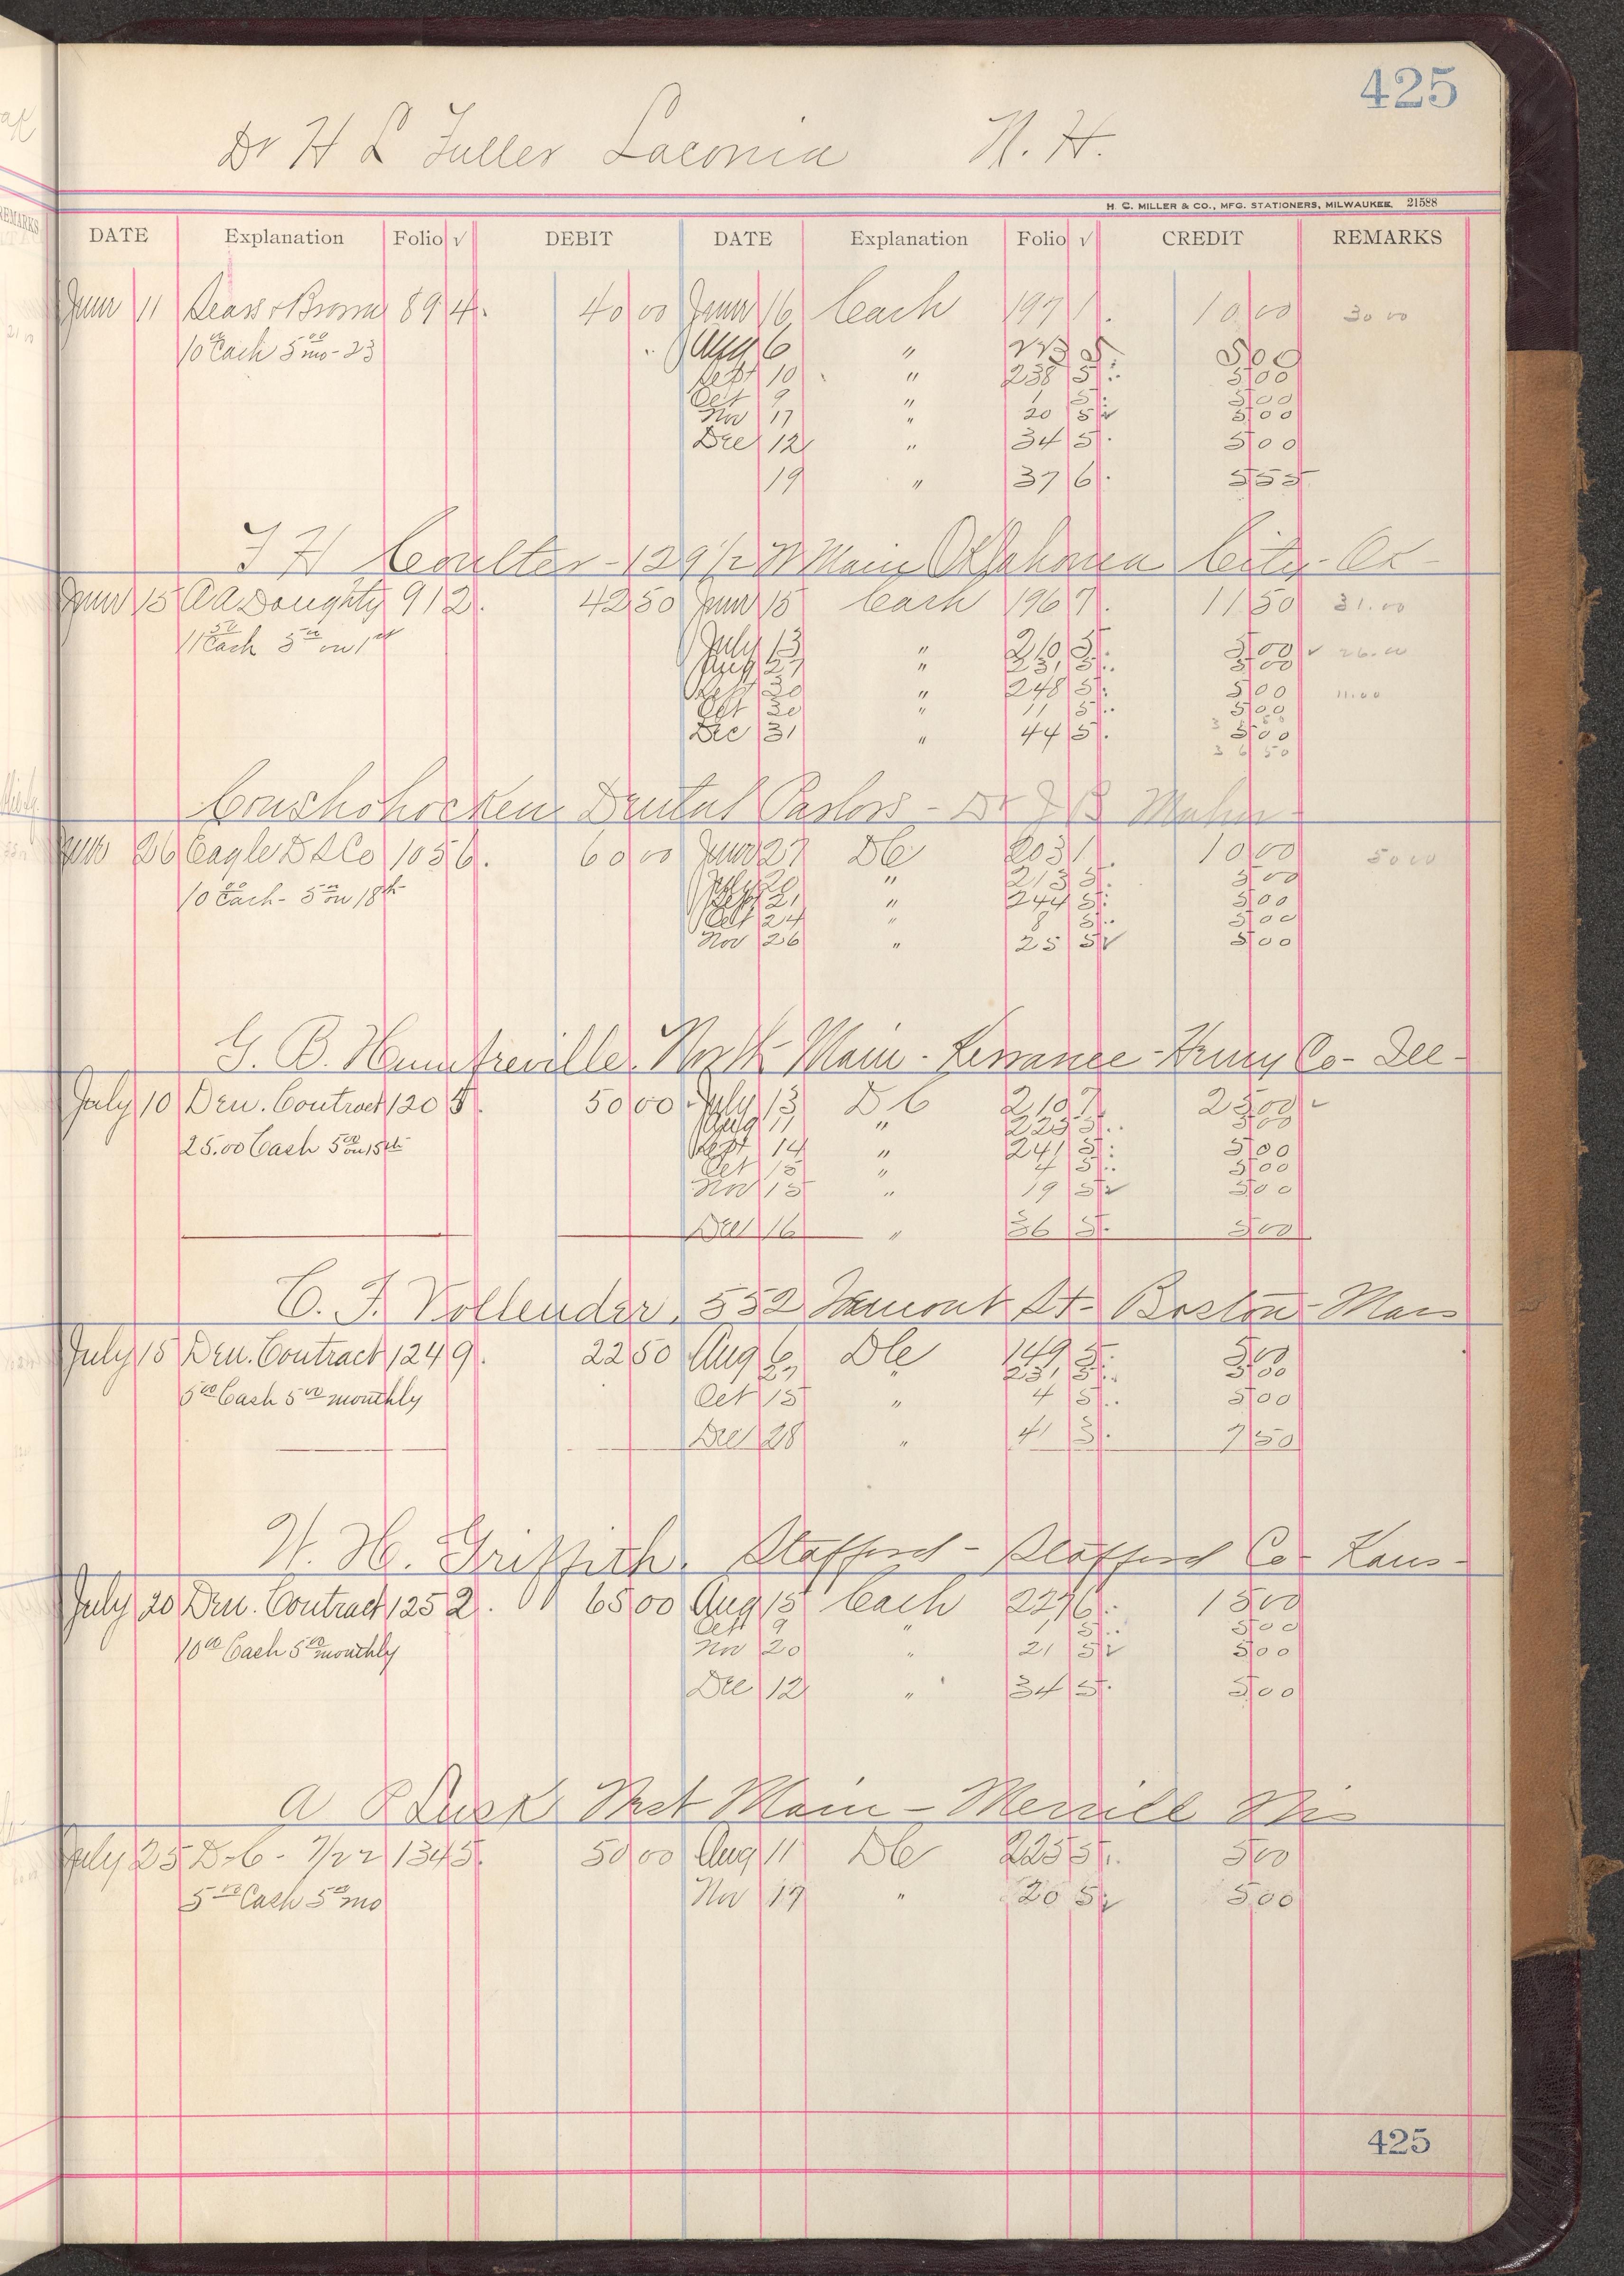 425
Dr H L Fuller Laconia N. H.
H. C. MILLER & CO., MFG. STATIONERS, MILWAUKEE. 21588
DATE Explanation Folio √ DEBIT DATE Explanation Folio √ CREDIT REMARKS
June 11 Sears & Brown 89 4. 40 00 June 16 Cash 197 1. 10 00 30 00
10 00 Cash 5 00 mo - 23 Aug 6 " 223 5 5 00
Sept 10 " 238 5 5 00
Oct 9 " 1 5 5 00
Nov 17 " 20 5 √ 5 00
Dec 12 " 34 5 5 00
19 " 37 6 5 55
F H Coulter - 129 1/2 W Main Oklahoma City - Ok -
June 15 A A Doughty 91 2. 42 50 June 15 Cash 196 7. 11 50 31.00
11 50 Cash 5 00 on 1st July 13 " 210 5 5 00 √ 26.00
Aug 27 " 231 5 5 00
Sept 30 " 248 5 5 00 11.00
Oct 30 " 11 5 5 00
Dec 31 " 44 5 5 00
36 50
Conshohocken Dental Parlors - Dr J B Maher
June 26 Eagle D S Co 105 6. 60 00 June 27 DC 203 1 10 00 50 00
10 00 Cash - 5 00 on 18th " 213 5 5 00
Sept 21 " 244 5 5 00
Oct 24 " 8 5 5 00
Nov 26 " 25 5 √ 5 00
G. B. Humtreville. North Main - Kewanee - Henry Co - Ill -
July 10 Den. Contract 120 5. 50 00 July 13 D C 210 7 25 00 √
Aug 11 " 225 5 5 00
25.00 Cash 5 00 on 15th Sept 14 " 241 5 5 00
Oct 15 " 4 5 5 00
Nov 15 " 19 5 √ 5 00
Dec 16 " 36 5. 5 00
C. F. Vollender, 552 Tremont St - Boston - Mass
July 15 Den. Contract 124 9. 22 50 Aug 6 DC 149 5 5 00
27 " 231 5 5 00
5 00 Cash 5 00 monthly Oct 15 " 4 5 5 00
Dec 28 " 41 3. 7 50
W. H. Griffith. Stafford - Stafford Co - Kans -
July 20 Den. Contract 125 2. 65 00 Aug 15 Cash 227 6 15 00
Oct 9 " 1 5 5 00
10 00 Cash 5 00 monthly Nov 20 " 21 5 √ 5 00
Dec 12 " 34 5. 5 00
A P Lusk West Main - Merrill Wis
July 25 D-C - 7/22 134 5. 50 00 Aug 11 DC 225 5. 5 00
5 00 Cash 5 00 mo Nov 17 " 20 5 √ 5 00
425